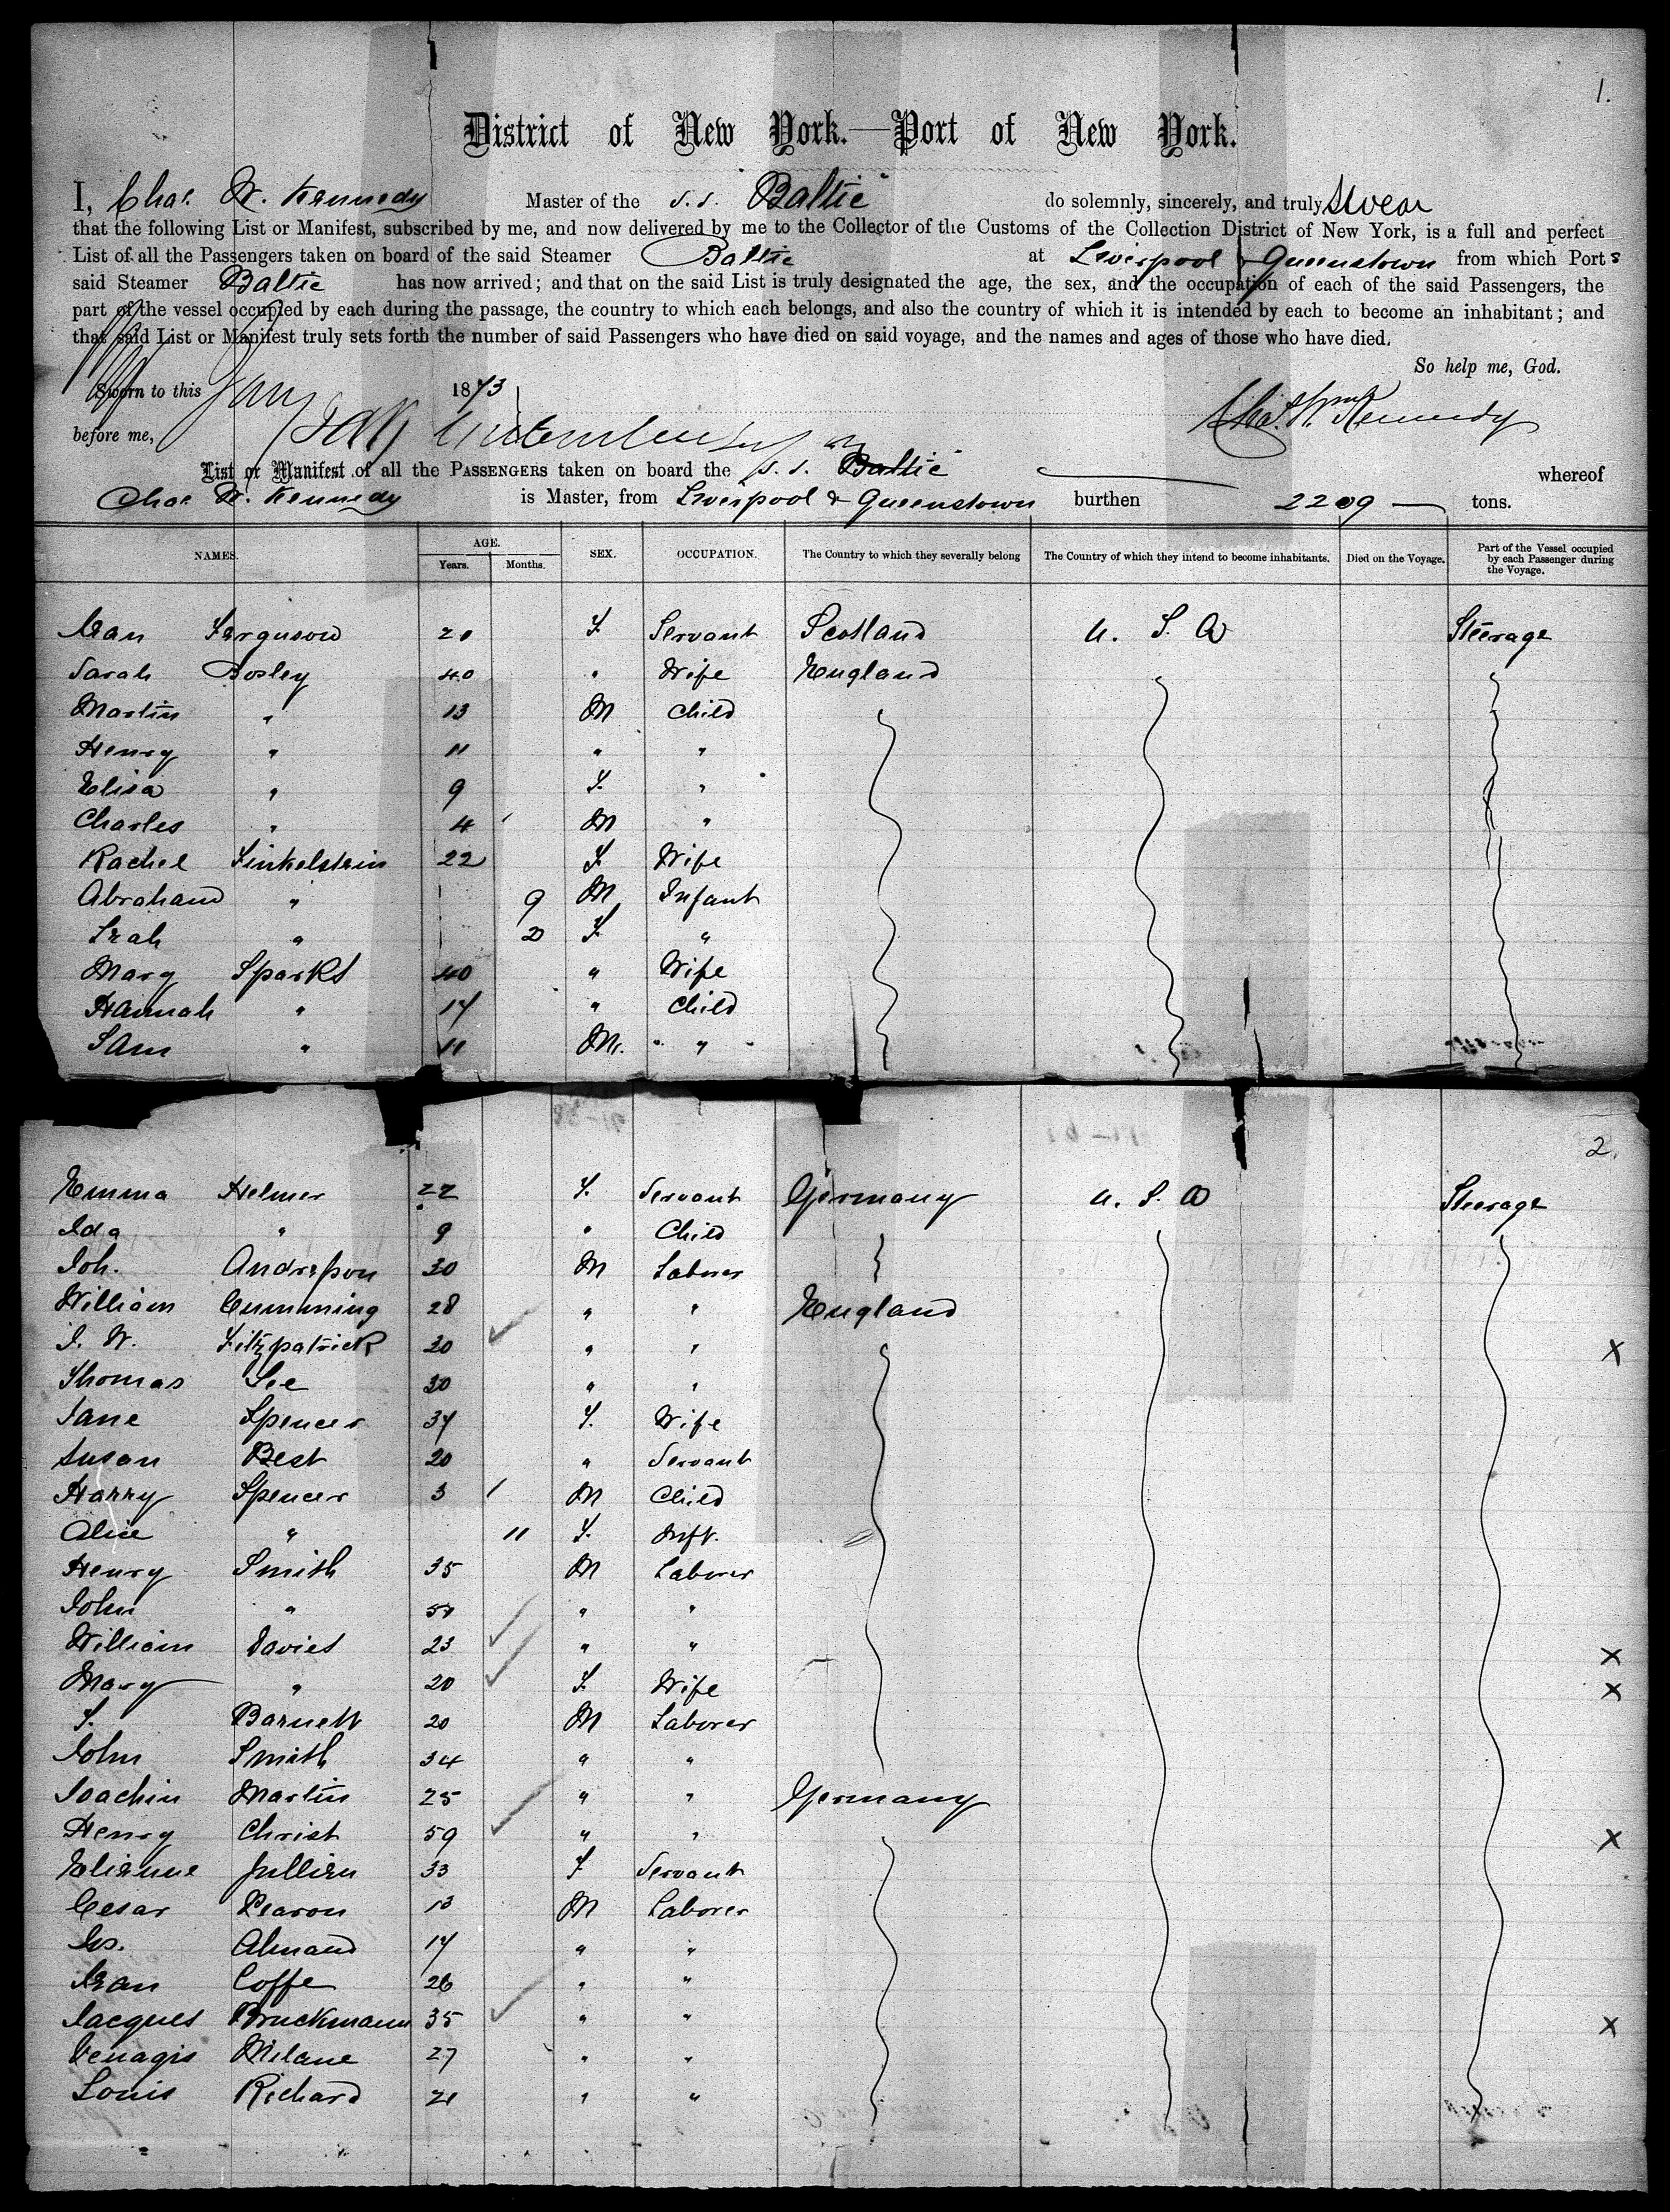 1.
District of New York.—Port of New York.
I, Chas. W. Kennedy Master of the S.S. "Baltic" do solemnly, sincerely, and truly swear
that the following List or Manifest, subscribed by me, and now delivered by me to the Collector of the Customs of the Collection District of New York, is a full and perfect
List of all the Passengers taken on board of the said Steamer Baltic at Liverpool & Queenstown from which Ports
said Steamer Baltic has now arrived; and that on the said List is truly designated the age, the sex, and the occupation of each of the said Passengers, the
part of the vessel occupied by each during the passage, the country to which each belongs, and also the country of which it is intended by each to become an inhabitant; and
that said List or Manifest truly sets forth the number of said Passengers who have died on said voyage, and the names and ages of those who have died.
So help me, God.
Sworn to this Jany 1873
Chas. Wm Kennedy
before me,
List or Manifest of all the PASSENGERS taken on board the S.S. "Baltic" whereof
Chas. W. Kennedy is Master, from Liverpool & Queenstown burthen 2209 tons.
NAMES. AGE. Years. Months. SEX. OCCUPATION. The Country to which they severally belong The Country of which they intend to become inhabitants. Died on the Voyage. Part of the Vessel occupied by each Passenger during the Voyage.
Jean Ferguson 20 F. Servant Scotland U. S. A Steerage
Sarah Bosley 40 " Wife England
Martin " 13 M Child
Henry " 11 " "
Elisa " 9 F. "
Charles " 4 M "
Rachel Finkelstein 22 F Wife
Abraham " 9 M Infant
Leah " F. "
Mary Sparks 40 " Wife
Hannah " 14 " Child
Sam " 11 M. "
2.
Emma Helmer 22 F. Servant Germany U. S. A Steerage
Ida " 9 " Child
Joh. Andresson 30 M Laborer
William Cumming 28 " " England
J. W. Fitzpatrick 30 " " X
Thomas Lee 30 " "
Jane Spencer 34 F. Wife
Susan Best 20 " Servant
Harry Spencer 3 M Child
Alice " 11 F. Inft.
Henry Smith 35 M Laborer
John " " "
William Davies 23 " " X
Mary " 20 F. Wife X
Barnett 20 M Laborer
John Smith 34 " "
Joachin Martin 25 " " Germany
Henry Christ 59 " " X
Etienne Jullien 33 F Servant
Cesar Pearon 13 M Laborer
Jos. Almand 14 " "
Jean Coffe 26 " "
Jacques Bruckmann 35 " " X
Milane 27 " "
Louis Richard 21 " "